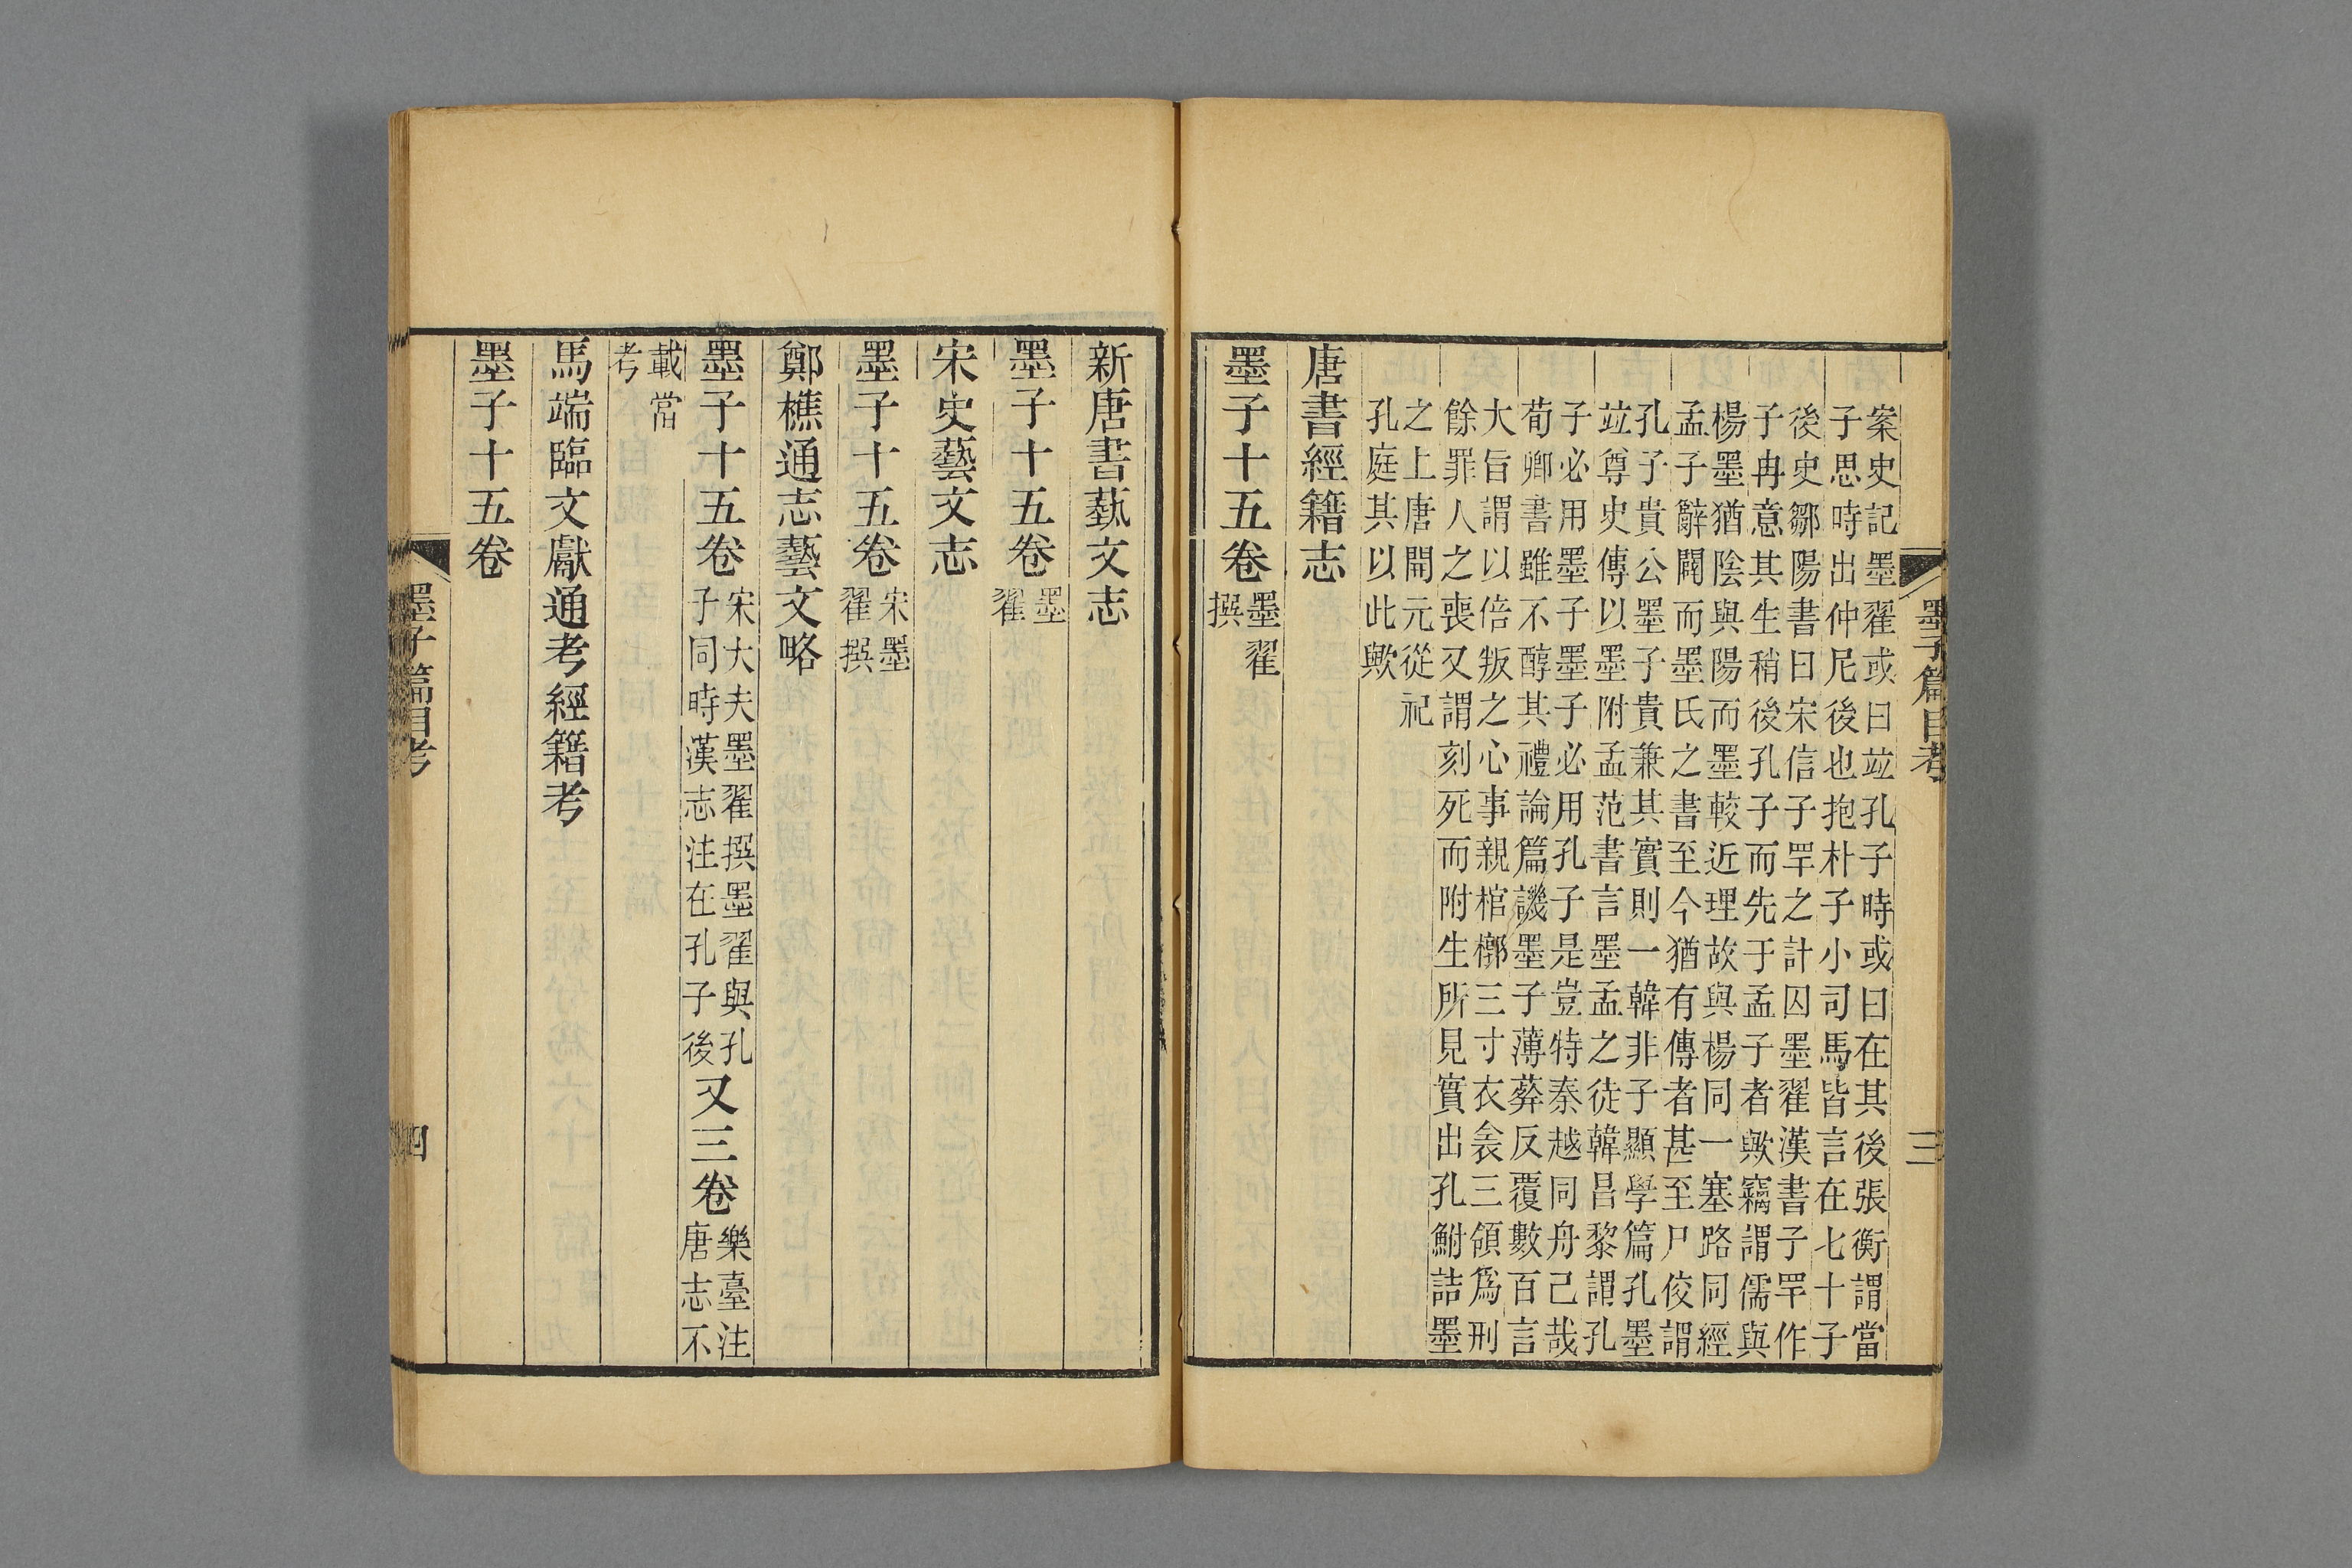 案史記墨翟或曰竝孔子時或曰在其後張衡謂當
子思時出仲尼後也抱朴子小司馬皆言在七十子
後史鄒陽書曰宋信子罕之計囚墨翟漢書子罕作
子冉意其生稍後孔子而先于孟子者歟竊謂儒與
楊墨猶陰與陽而墨較近理故與楊同一塞路同經
孟子辭闢而墨氏之書至今猶有傳者甚至尸佼謂
孔子貴公墨子貴兼其實則一韓非子顯學篇孔墨
竝尊史傳以墨附孟范書言墨孟之徒韓昌黎謂孔
子必用墨子墨子必用孔子是豈特秦越同舟己哉
荀卿書雖不醇其禮論篇譏墨子薄葬反覆數百言
大旨謂以倍叛之心事親棺槨三寸衣衾三領爲刑
餘罪人之喪又謂刻死而附生所見實出孔鮒詰墨
之上唐開元從祀
孔庭其以此歟
唐書經籍志
墨子十五卷墨翟
撰
墨子篇目考
三
新唐書藝文志
墨子十五卷墨
翟
宋史藝文志
墨子十五卷宋墨
翟撰
鄭樵通志藝文略
墨子十五卷宋大夫墨翟撰墨翟與孔
子同時漢志注在孔子後又三卷樂臺注
唐志不
載當
考
馬端臨文獻通考經籍考
墨子十五卷
墨子篇目考
四